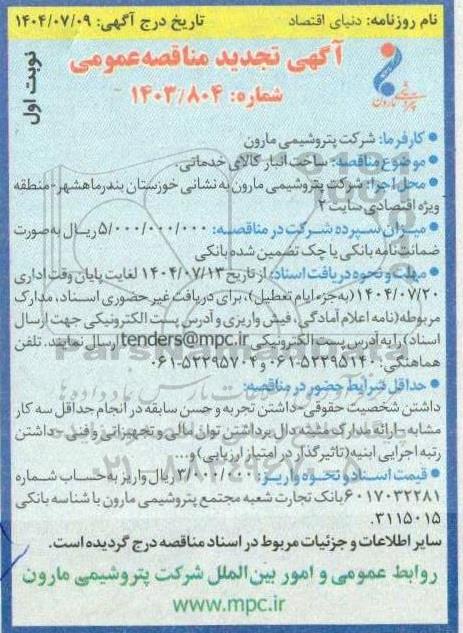 نام روزنامه: دنیای اقتصاد تاریخ درج آگهی: ۱۴۰۴/۰۷/۰۹
آگهی تجدید مناقصه عمومی
شماره: ۱۴۰۳/۸۰۴
نوبت اول
پتروشیمی مارون
● کارفرما: شرکت پتروشیمی مارون
● موضوع مناقصه: ساخت انبار کالای خدماتی.
● محل اجرا: شرکت پتروشیمی مارون به نشانی خوزستان بندرماهشهر-منطقه
ویژه اقتصادی سایت ۲
● میـزان سپرده شـرکت در مناقصـه: ۵/۰۰۰/۰۰۰/۰۰۰ ریـال به صورت
ضمانت‌نامه بانکی یا چک تضمین شده بانکی
● مهلت و نحوه دریافت اسناد: از تاریخ ۱۴۰۴/۰۷/۱۳ لغایت پایان وقت اداری
۱۴۰۴/۰۷/۲۰ (به جزء ایام تعطیل)، برای دریافت غیر حضوری اسـناد، مدارک
مربوطه (نامه اعلام آمادگی، فیش واریزی و آدرس پست الکترونیکی جهت ارسال
اسناد) را به آدرس پست الکترونیکی tenders@mpc.ir ارسال نمایند. تلفن
هماهنگی: ۵۲۲۹۵۱۴۰-۰۶۱ و ۵۲۲۹۵۷۰۲-۰۶۱
● حداقل شرایط حضور در مناقصه:
داشتن شخصیت حقوقی-داشتن تجربه و حسن سابقه در انجام حداقل سه کار
مشابه-ارائه مدارک مثبته دال بر داشتن توان مالی و تجهیزاتی و فنی-داشتن
رتبه اجرایی ابنیه (تاثیرگذار در امتیاز ارزیابی) و...
● قیمت اسـناد و نحـوه واریـز: ۳/۰۰۰/۰۰۰ ریال واریز به حساب شـماره
۶۰۱۷۰۳۲۲۸۱ بانک تجارت شعبه مجتمع پتروشیمی مارون با شناسه بانکی
۳۱۱۵۰۱۵.
سایر اطلاعات و جزئیات مربوط در اسناد مناقصه درج گردیده است.
روابط عمومی و امور بین الملل شرکت پتروشیمی مارون
www.mpc.ir